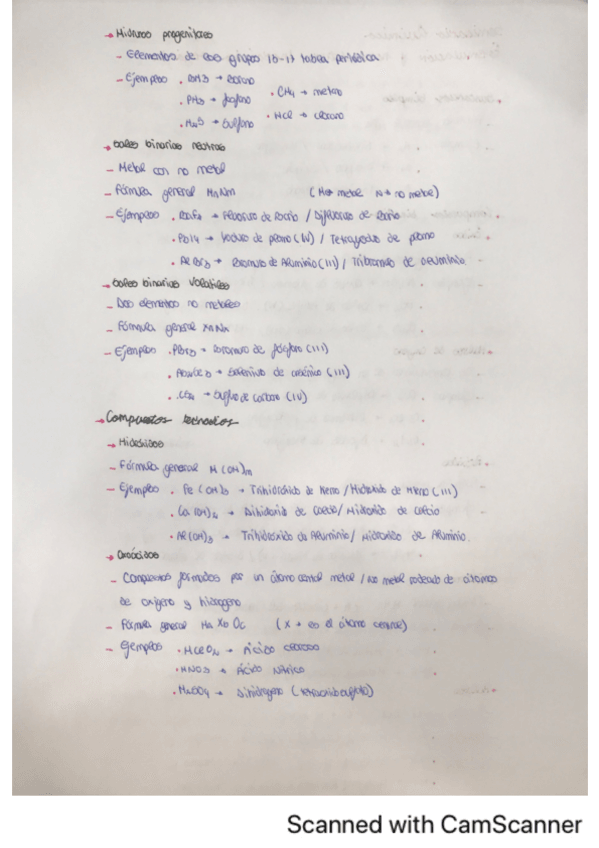 → Hidruros progenitores
- Elementos de los grupos 13-17 tabla periódica
- Ejemplos . BH3 → borano . CH4 → metano
. PH3 → fosfano . HCl → clorano
. H2S → Sulfano
→ Sales binarias neutras
- Metal con no metal
- Fórmula general MnNm (M→ metal N→ no metal)
- Ejemplos . BaF2 → Fluoruro de Bario / Difluoruro de Bario
. PbI4 → Ioduro de plomo (IV) / Tetrayoduro de plomo
. AlBr3 → Bromuro de Aluminio (III) / Tribromuro de aluminio
→ Sales binarias volátiles
- Dos elementos no metales
- Fórmula general
- Ejemplos . PBr3 → Bromuro de fósforo (III)
. → Seleniuro de arsénico (III)
. CS2 → Sulfuro de carbono (IV)
→ Compuestos ternarios
→ Hidróxidos
- Fórmula general M(OH)m
- Ejemplos . Fe(OH)3 → Trihidróxido de hierro / Hidróxido de hierro (III)
. Ca(OH)2 → Dihidróxido de Calcio / Hidróxido de calcio
. Al(OH)3 → Trihidróxido de Aluminio / Hidróxido de Aluminio.
→ Oxoácidos
- Compuestos formados por un átomo central metal / no metal rodeado de átomos
de oxígeno y hidrógeno
- Fórmula general Ha Xb Oc (X → es el átomo central)
- Ejemplos . HClO2 → Ácido cloroso
. HNO3 → Ácido Nítrico
. H2SO4 → Dihidrogeno (tetraoxidosulfato)
Scanned with CamScanner